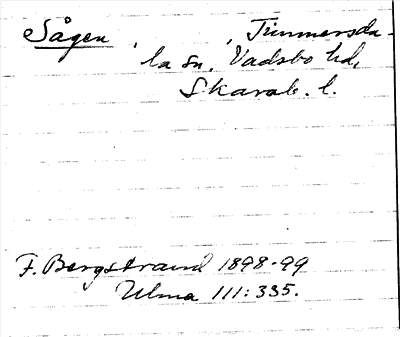 Sågen , , Timmersda-
la sn, Vadsbo hd,
Skarab. l.
F. Bergstrand 1898-99
Ulma 111:335.